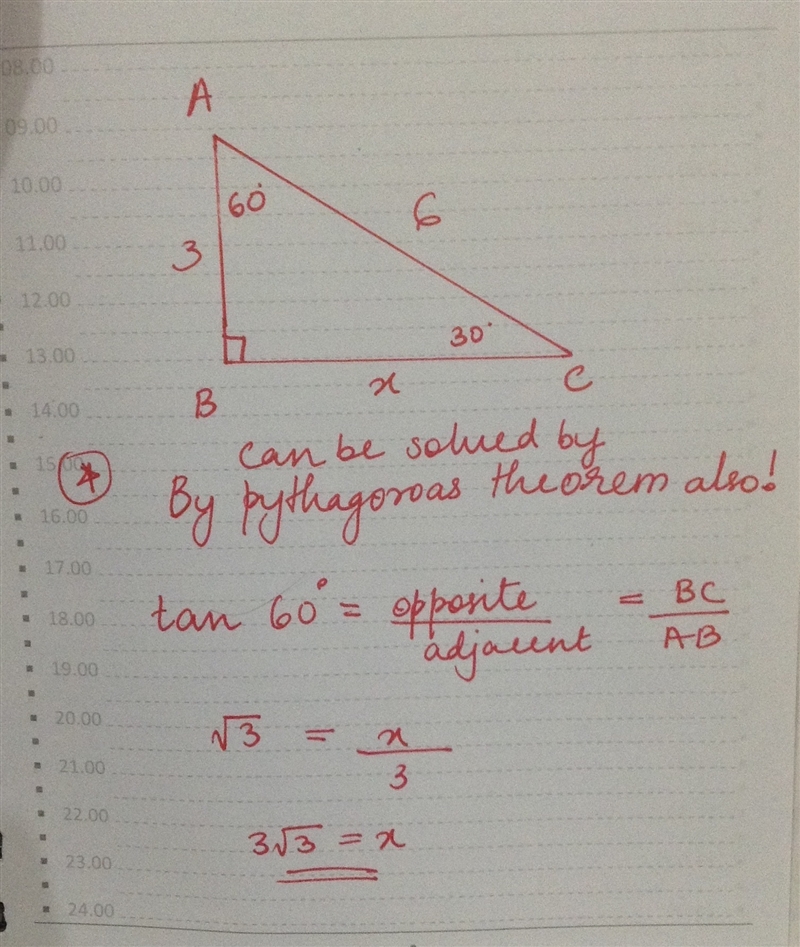 08.00
A
09.00
10.00
60°
6
11.00
3
12.00
30°
13.00
x
C
B
14.00
can be solved by
15.00
By pythagoroas theorem also!
16.00
17.00
tan 60° = opposite / adjacent = BC / AB
18.00
19.00
20.00
√3 = x / 3
21.00
22.00
3√3 = x
23.00
24.00